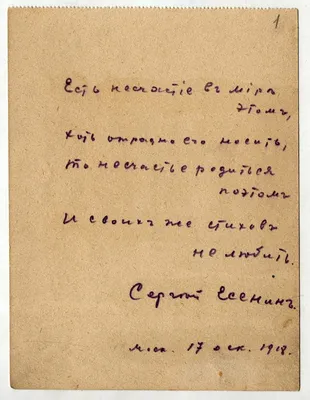 1
Есть несчастіе въ міръ
этомъ,
хоть отрадно его носить,
то несчастье родиться
поэтомъ
И своихъ же стиховъ
не любить.
Сергей Есенинъ.
Моск. 17 окт. 1918.